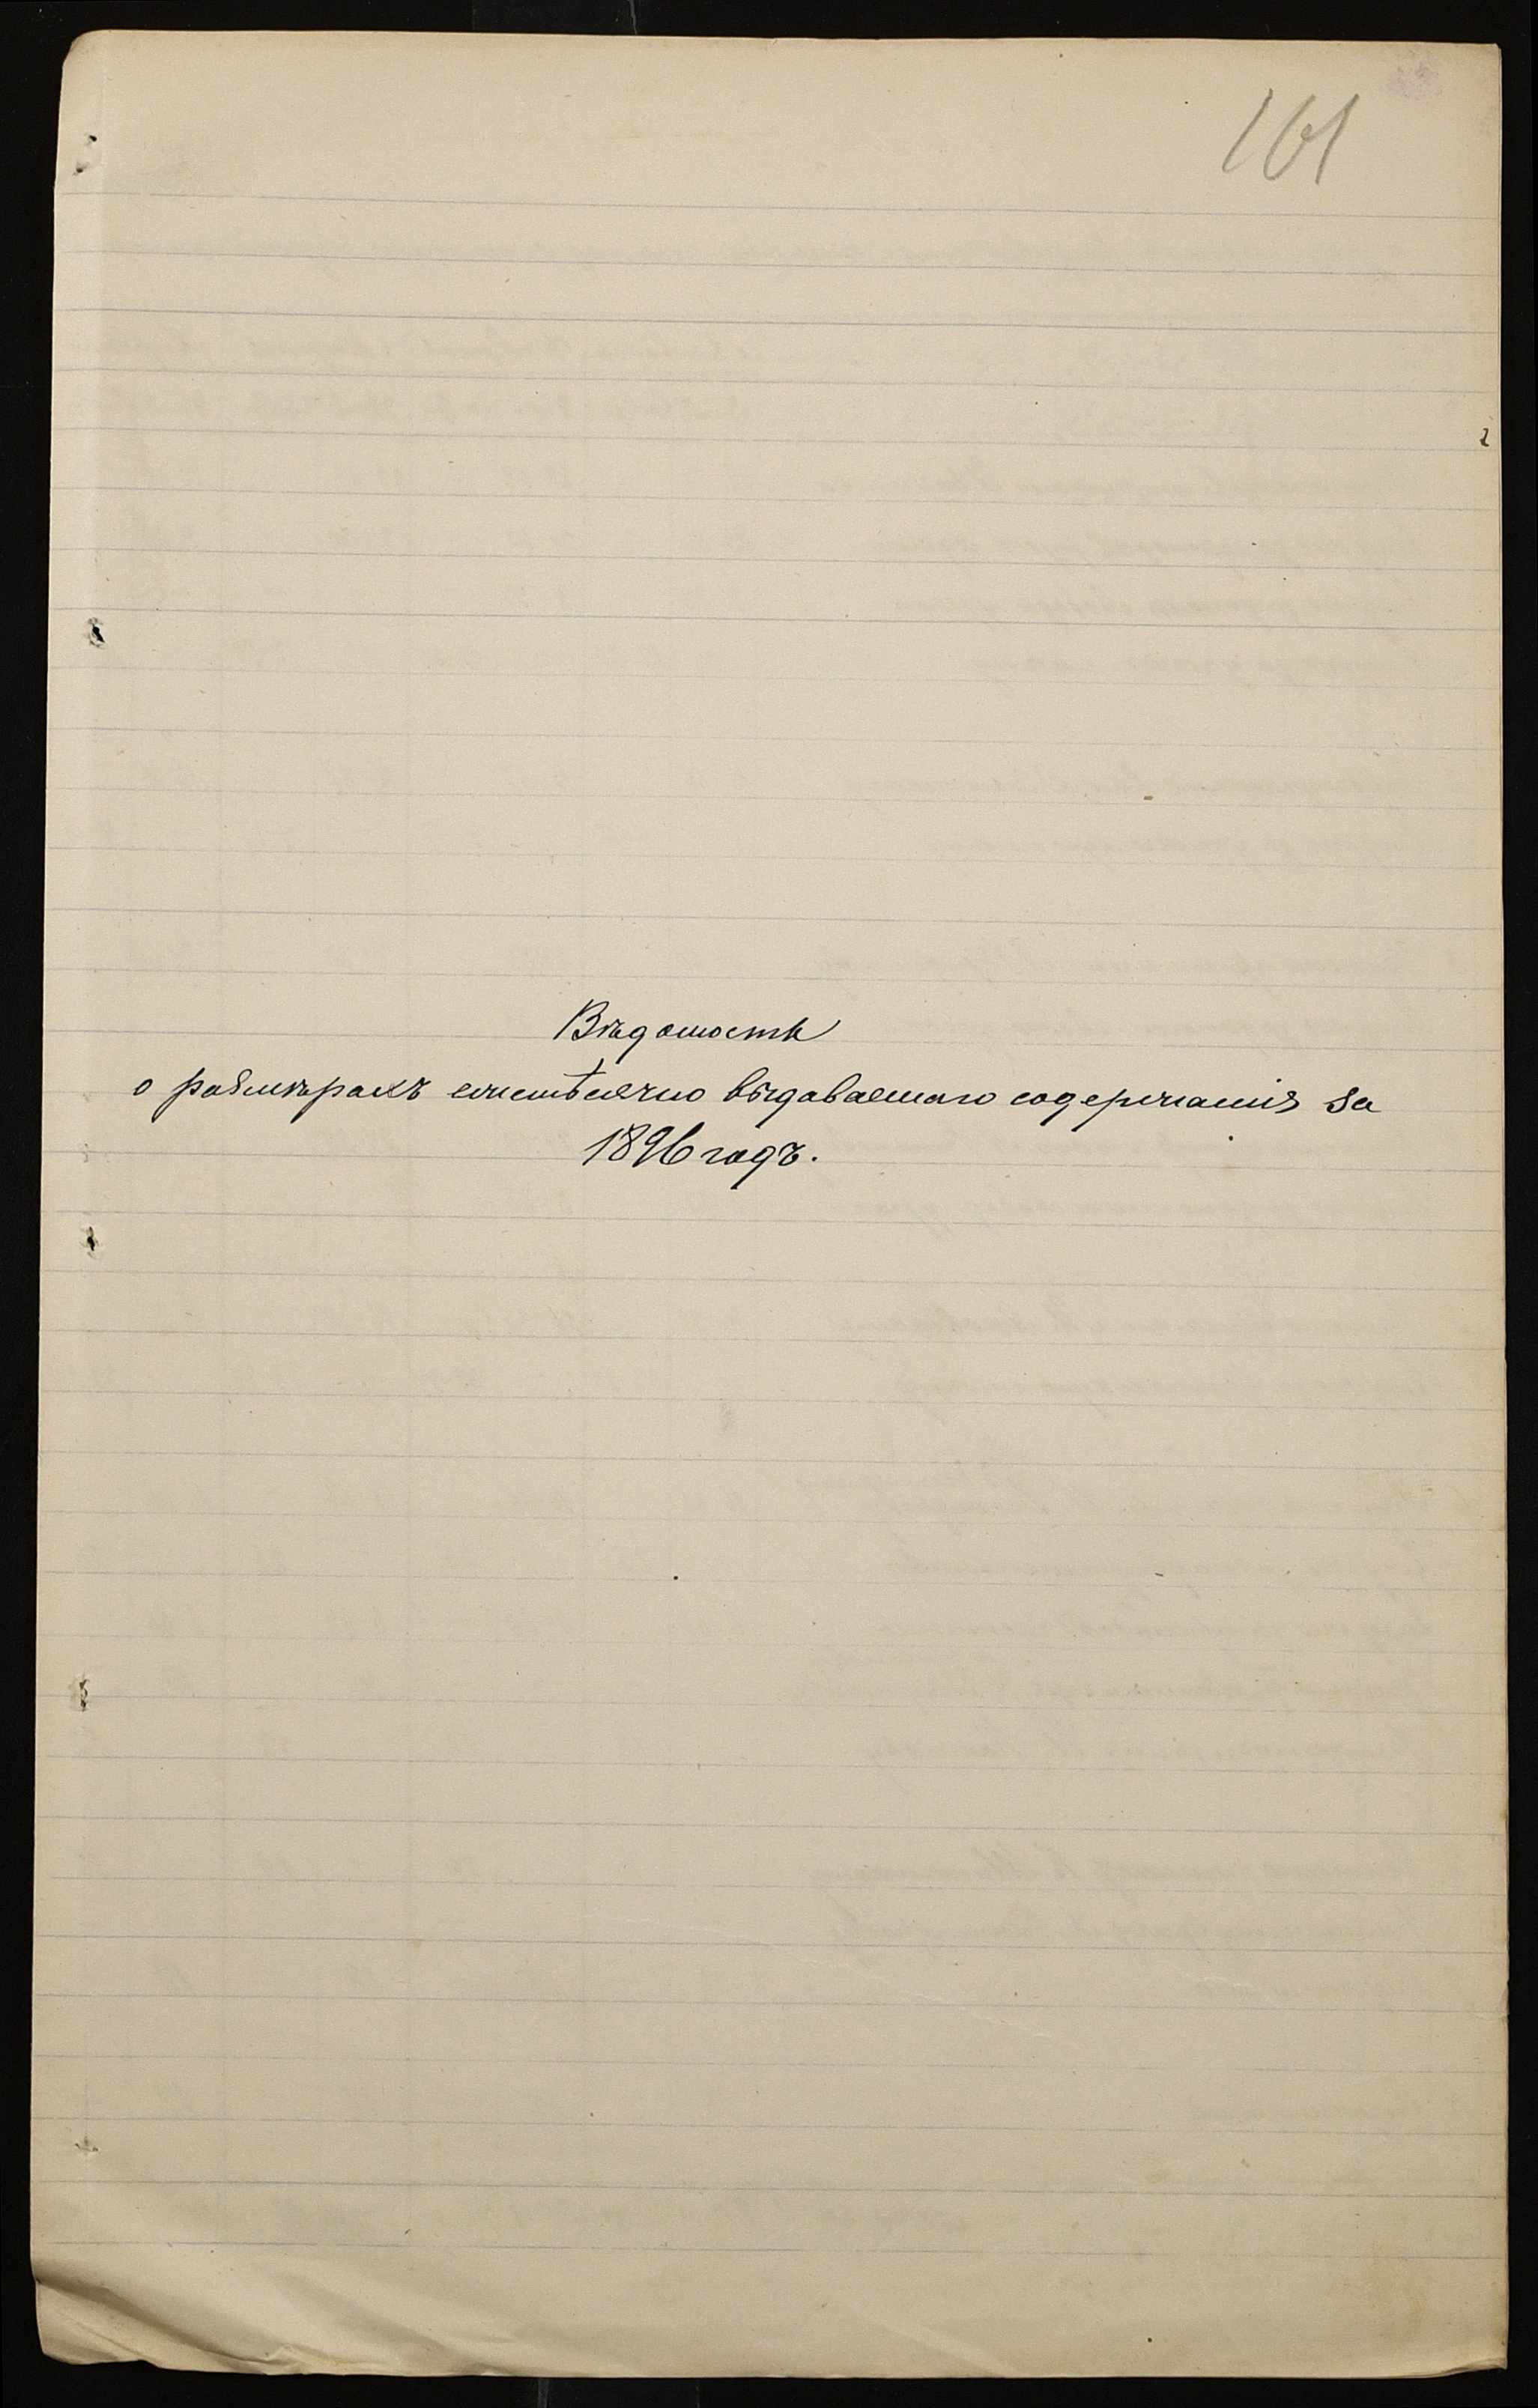 161
Вѣдомость
о размѣрахъ ежемѣсячно выдаваемаго содержанія за
1896 годъ.